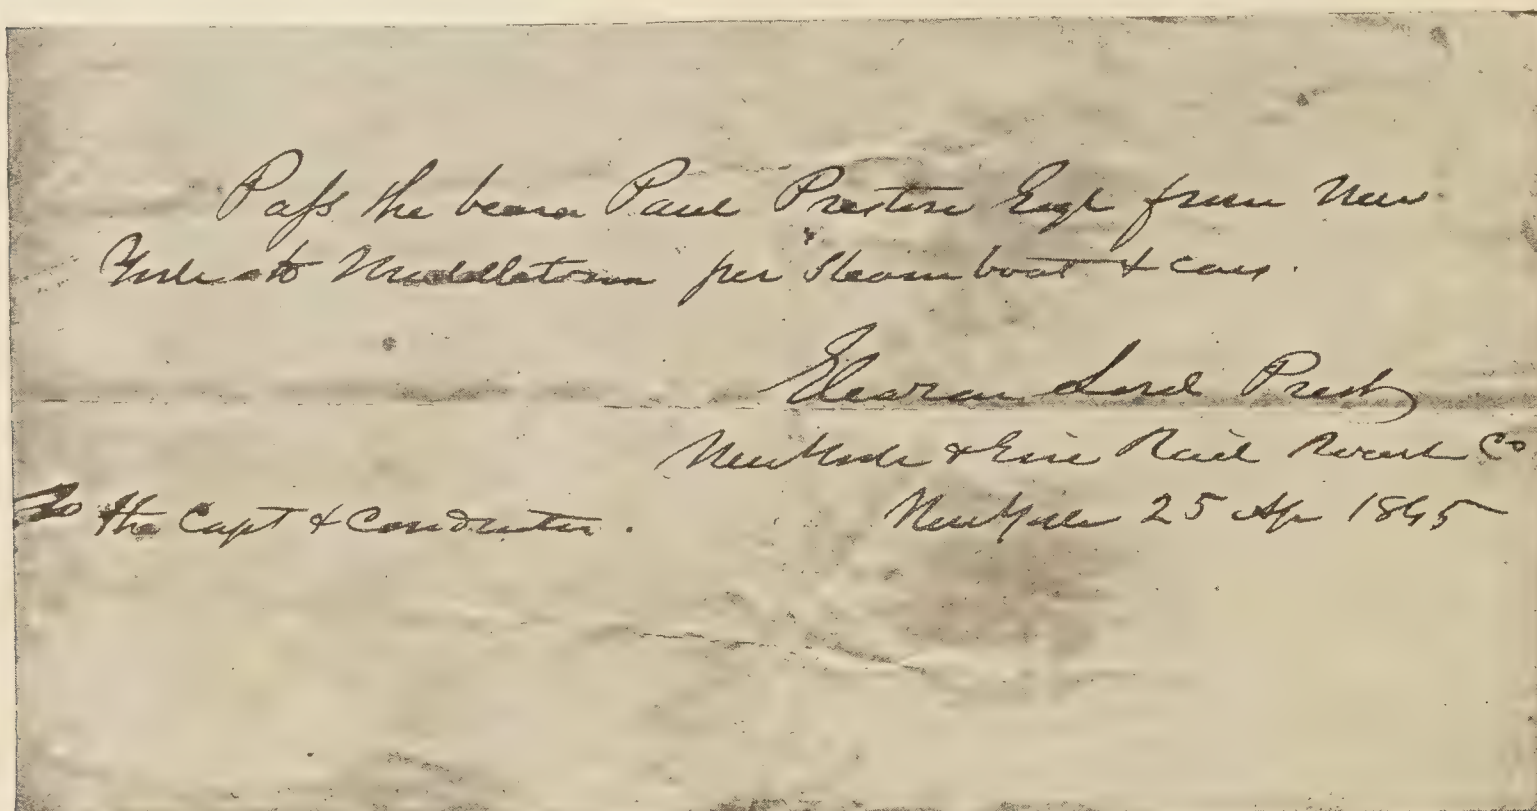 Pass the bearer Paul Preston Esqr from New
York to Middletown per Steam boat & cars.
Eleazar Lord Prest
New York & Erie Rail Road Co
To the Capt & Conductor.
New York 25 Ap 1845